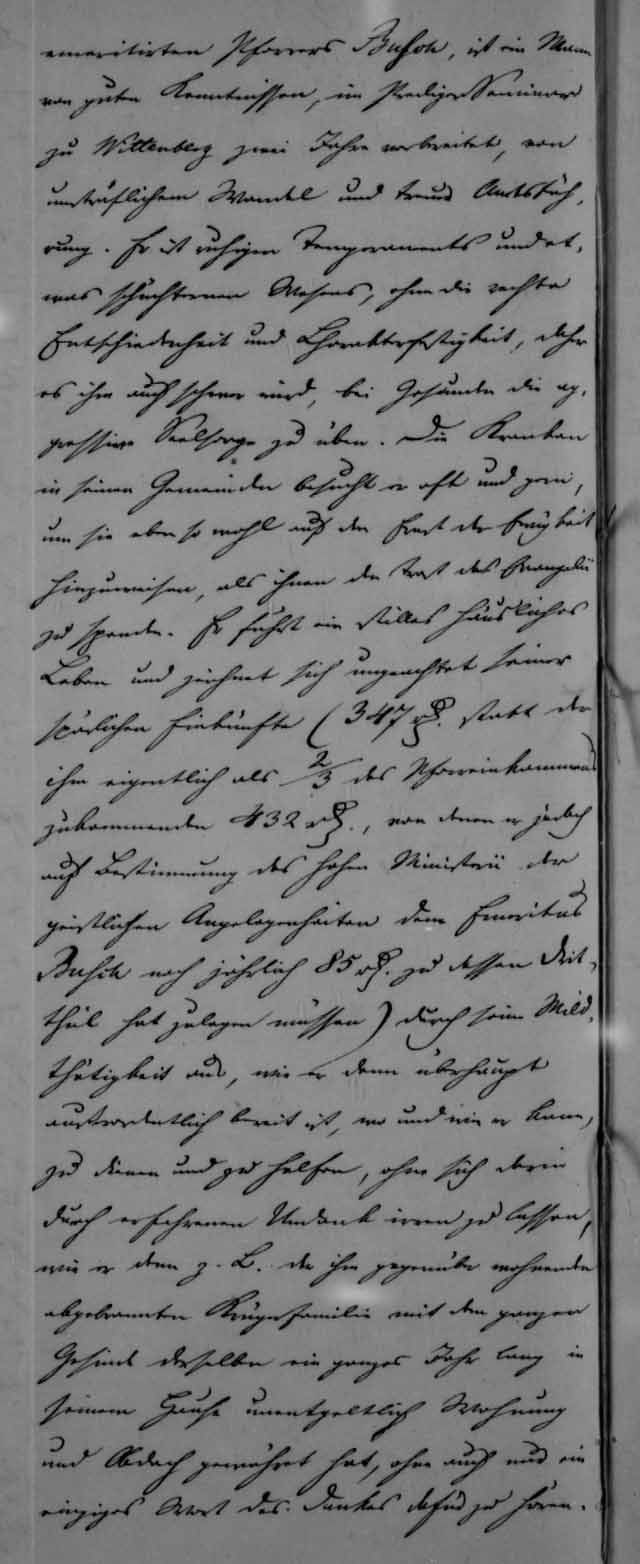 emeritirten Pfarrers Busch, ist ein Mann
von guten Kenntnissen, im Prediger Seminar
zu Wittenberg zwei Jahre vorbereitet, von
unsträflichem Wandel und treuer Amtsfüh-
rung. Er ist ruhigen Temperaments und et-
was schüchternen Wesens, ohne die rechte
Entschiedenheit und Charakterfestigkeit, daher
es ihm auch schwer wird, bei Gesunden die ag-
gressive Seelsorge zu üben. Die Kranken
in seinen Gemeinden besucht er oft und gern,
um sie eben so wohl auf den Ernst der Ewigkeit
hinzuweisen, als ihnen den Trost des Evangelii
zu spenden. Er führt ein stilles häusliches
Leben und zeichnet sich ungeachtet seiner
spärlichen Einkünfte (347 rt. statt der
ihm eigentlich als 2/3 des Pfarreinkommens
zukommenden 432 rt., von denen er jedoch
auf Bestimmung des hohen Ministerii der
geistlichen Angelegenheiten dem Emeritus
Busch noch jährlich 85 rt. zu dessen Drit-
theil hat zulegen müssen) durch seine Mild-
thätigkeit aus, wie er denn überhaupt
außerordentlich bereit ist, wo und wie er kann,
zu dienen und zu helfen, ohne sich darin
durch erfahrenen Undank irren zu lassen,
wie er denn z. B. der ihm gegenüber wohnenden
abgebrannten Krügerfamilie mit dem ganzen
Gesinde derselben ein ganzes Jahr lang in
seinem Hause unentgeltlich Wohnung
und Obdach gewährt hat, ohne auch nur ein
einziges Wort des Dankes dafür zu hören.